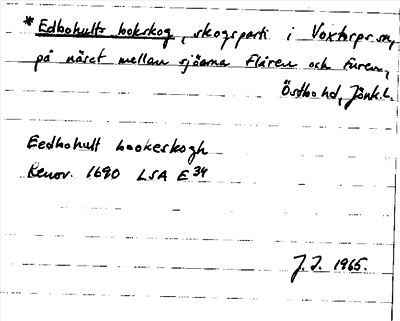 *Edbohults bokskog, skogsparti i Voxtorps sn,
på näset mellan sjöarna Flåren och Furen,
Östbo hd, Jönk. l.
Eedbohult bookeskogh
Renov. 1690 LSA E 34
J.I. 1965.